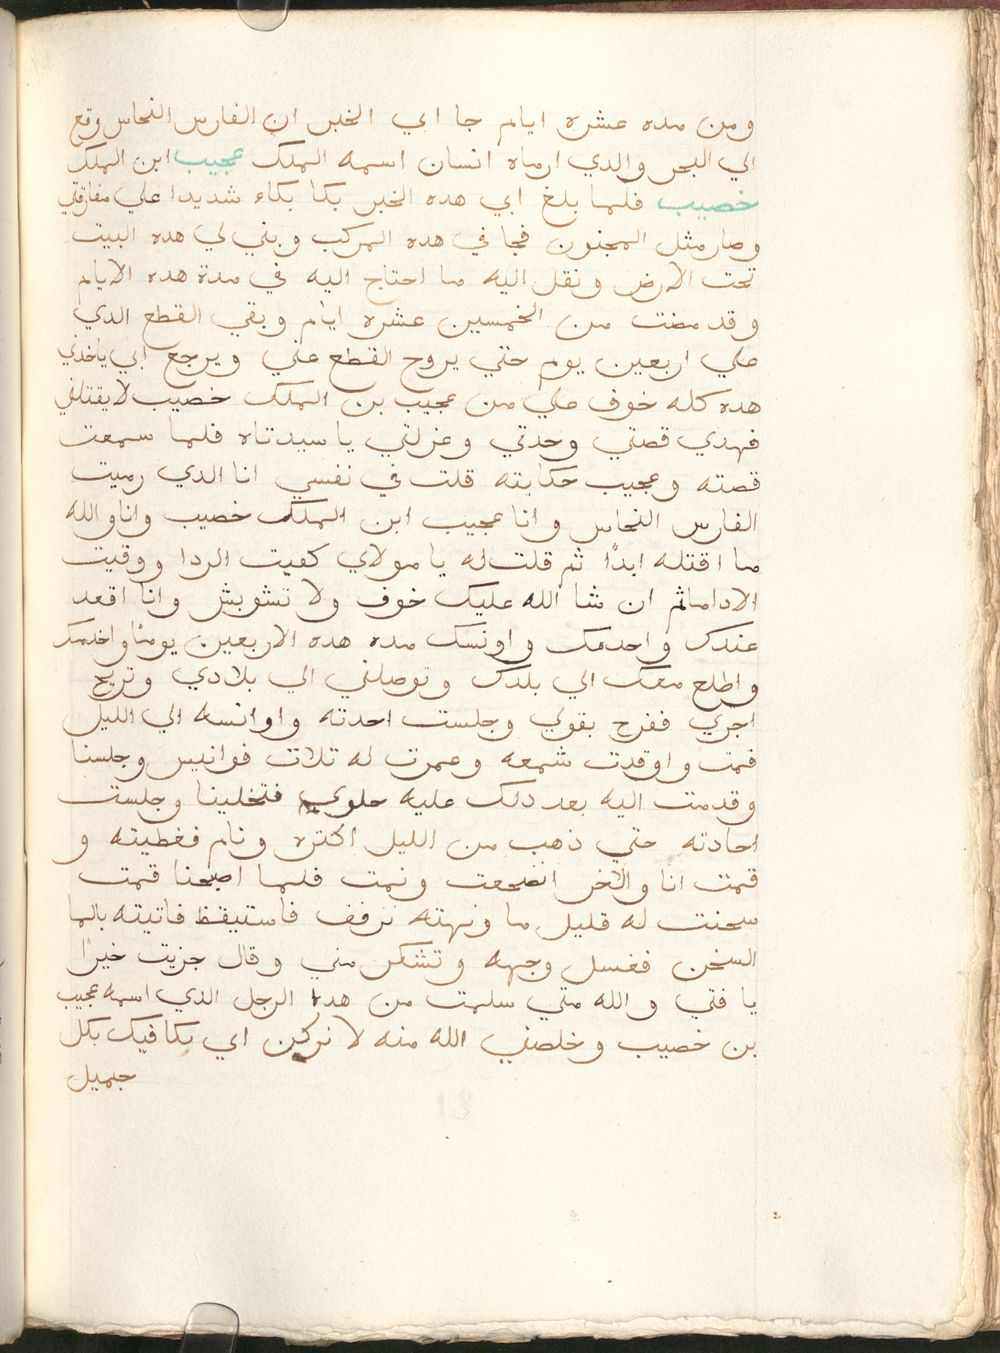 ومن مده عشره ايام جا ابي الخبر ان الفارس النحاس وقع
الي البحر والدي ارماه انسان اسمه الملك عجيب ابن الملك
خصيب فلما بلغ ابي هده الخبر بكا بكاء شديدا علي مفارقتي
وصار مثل المجنون فجا في هده المركب وبني لي هده البيت
تحت الارض ونقل اليه ما احتاج اليه في مدة هده الايام
وقد مضت من الخمسين عشره ايام وبقي القطع الدي
علي اربعين يوم حتي يروح القطع عني ويرجع ابي ياخدني
هده كله خوف علي من عجيب بن الملك خصيب لا يقتلني
فهدي قصتي وحدتي وعزلتي يا سيدتاه فلما سمعت
قصته وعجيب حكايته قلت في نفسي انا الدي رميت
الفارس النحاس وانا عجيب ابن الملك خصيب وانا والله
ما اقتله ابدًا ثم قلت له يا مولاي كفيت الردا ووقيت
الادا ماثم ان شا الله عليك خوف ولا تشويش وانا اقعد
عندك واحدمك واونسك مده هده الاربعين يومًا واخدمك
واطلع معك الي بلدك وتوصلني الي بلادي وتربح
اجري ففرح بقولي وجلست احدته واوانسه الي الليل
قمت واوقدت شمعه وعمرت له تلات فوانيس وجلسنا
وقدمت اليه بعد دلك عليه حلوي فتحلينا وجلست
احادته حتي ذهب من الليل اكتره ونام فغطيته و
قمت انا والاخر انضجعت ونمت فلما اصبحنا قمت
سخنت له قليل ما ونبهته برفق فاستيقظ فاتيته بالما
السخن فغسل وجهه وتشكر مني وقال جزيت خيرًا
يا فتي والله متي سلمت من هدا الرجل الدي اسمه عجيب
بن خصيب وخلصني الله منه لا تركن ابي يكافيك بكل
جميل